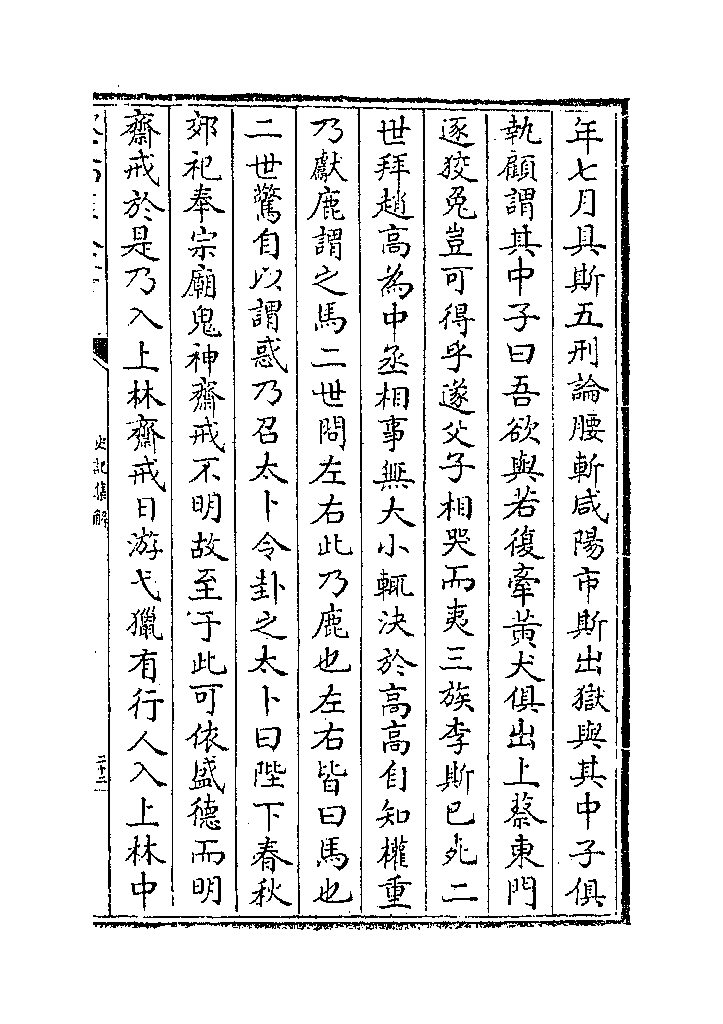 年七月具斯五刑論腰斬咸陽市斯出獄與其中子俱
執顧謂其中子曰吾欲與若復牽黃犬俱出上蔡東門
逐狡兔豈可得乎遂父子相哭而夷三族李斯已死二
世拜趙高為中丞相事無大小輒決於高高自知權重
乃獻鹿謂之馬二世問左右此乃鹿也左右皆曰馬也
二世驚自以謂惑乃召太卜令卦之太卜曰陛下春秋
郊祀奉宗廟鬼神齋戒不明故至于此可依盛德而明
齋戒於是乃入上林齋戒日游弋獵有行人入上林中
史記集解
二十二